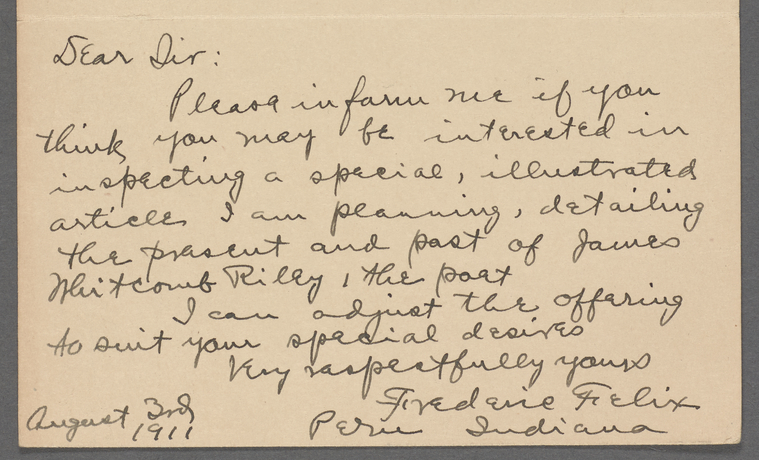 Dear Sir:
Please inform me if you
think you may be interested in
inspecting a special, illustrated
article I am planning, detailing
the present and past of James
Whitcomb Riley, the poet
I can adjust the offering
to suit your special desires
Very respectfully yours
Frederic Felix
August 3rd Peru Indiana
1911